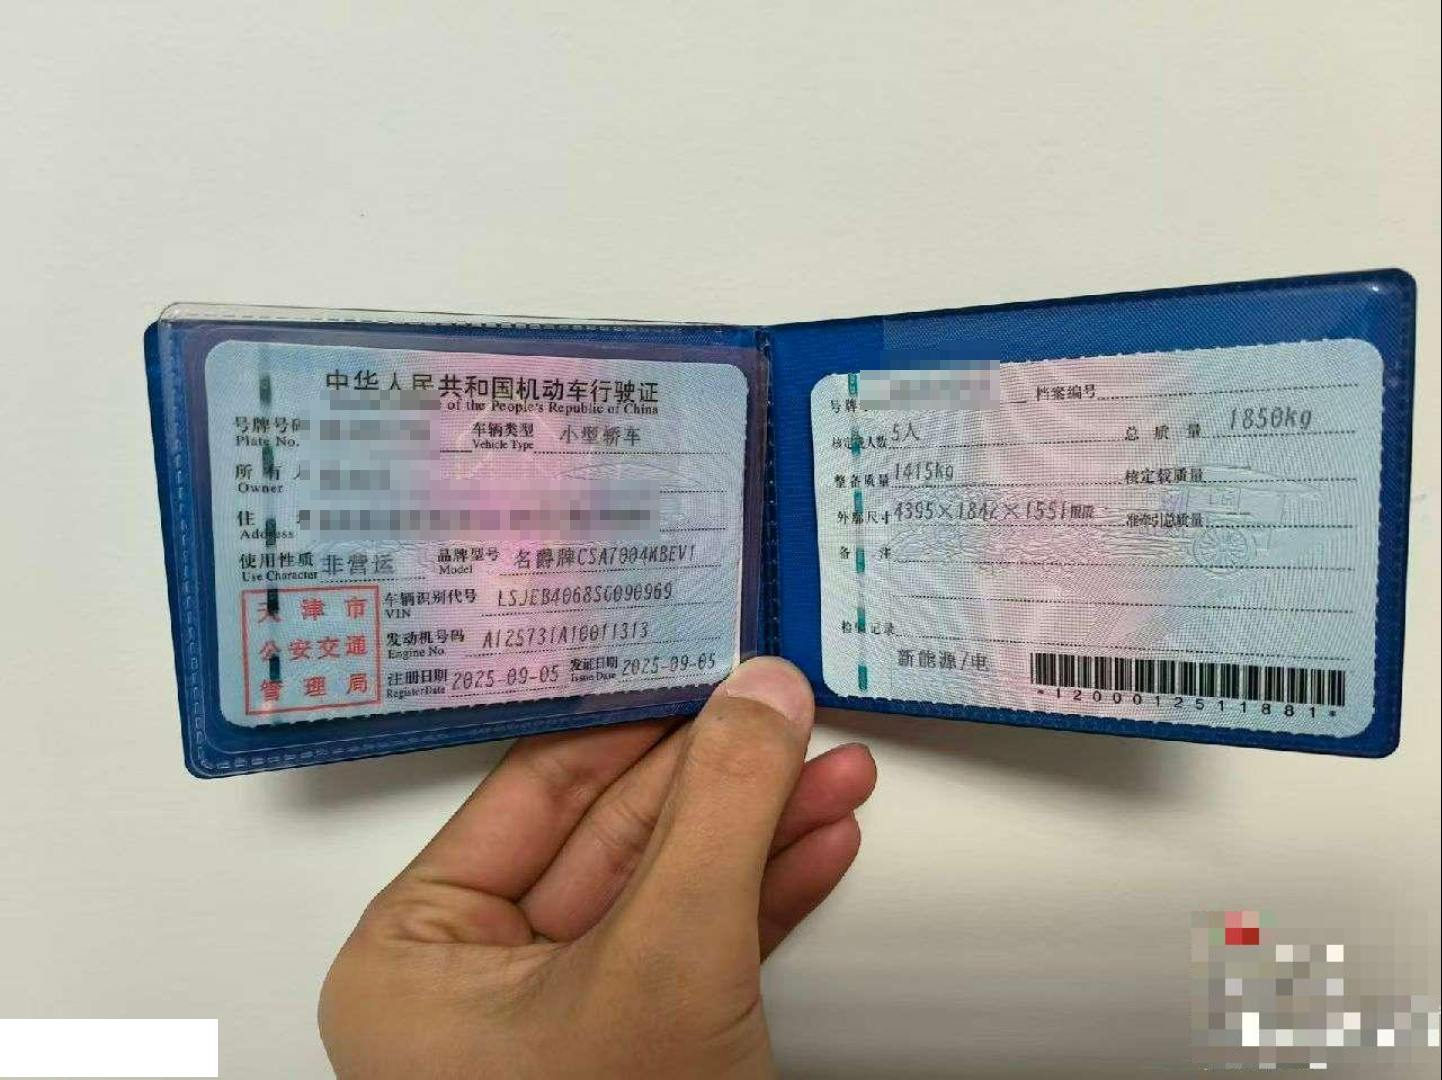 中华人民共和国机动车行驶证
of the People's Republic of China
号牌号码 车辆类型 小型轿车
Plate No. Vehicle Type
所有人
Owner
住
Address
使用性质 非营运 品牌型号 名爵牌CSA7004KBEV1
Use Character Model
天津市
公安交通
管理局
车辆识别代号 LSJEB4068SG090969
VIN
发动机号码 A125731A10011313
Engine No.
注册日期 2025-09-05 发证日期 2025-09-05
Register Date Issue Date
号牌 档案编号
核定载人数 5人 总质量 1850kg
整备质量 1415kg 核定载质量
外廓尺寸 4395×1842×1551 准牵引总质量
备注
检验记录
新能源/电
*1200012511881*